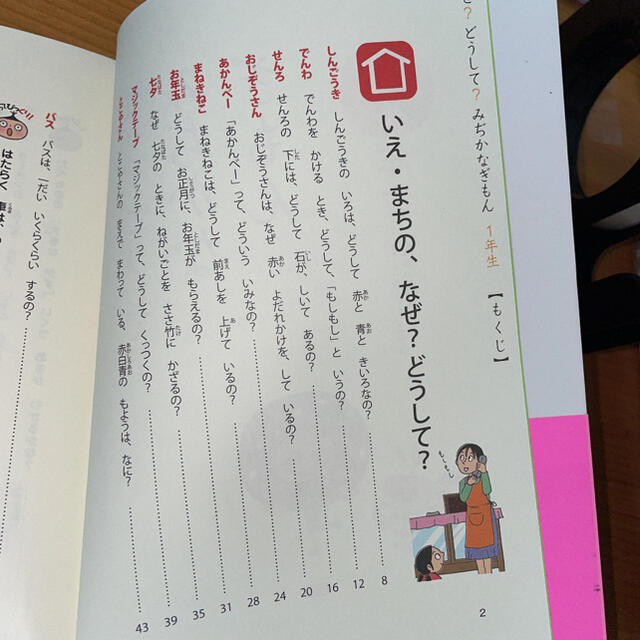 どうして? みぢかなぎもん 1年生 【もくじ】
いえ・まちの、なぜ? どうして?
しんごうき しんごうきの いろは、どうして 赤と 青と きいろなの? 8
でんわ でんわを かける とき、どうして、「もしもし」と いうの? 12
せんろ せんろの 下には、どうして 石が、しいて あるの? 16
おじぞうさん おじぞうさんは、なぜ 赤い よだれかけを、して いるの? 20
あかんべー 「あかんべー」って、どういう いみなの? 24
まねきねこ まねきねこは、どうして 前あしを 上げて いるの? 28
お年玉 どうして お正月に、お年玉が もらえるの? 31
七夕 なぜ 七夕の ときに、ねがいごとを ささ竹に かざるの? 35
マジックテープ 「マジックテープ」って、どうして くっつくの? 39
とこやさん とこやさんの まえで まわって いる、赤白青の もようは、なに? 43
もしもし
2
バス バスは、一だい いくらくらい するの?
はたらく